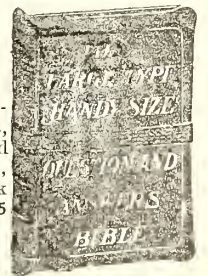 THE
LARGE TYPE
HANDY SIZE
QUESTION AND
ANSWERS
BIBLE
5